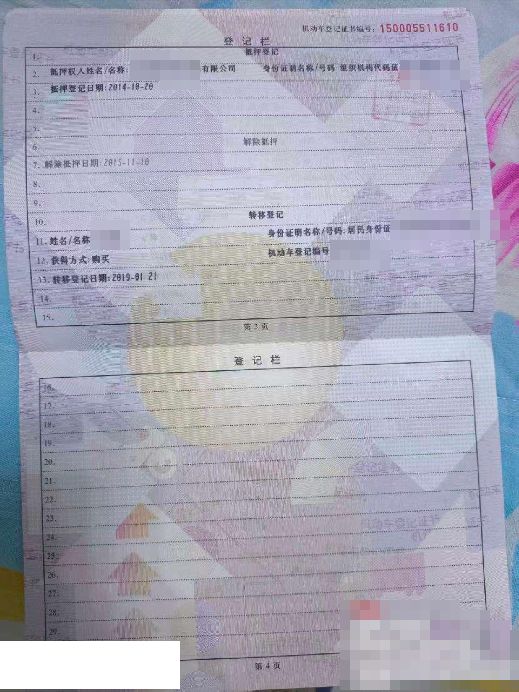 机动车登记证书编号：150005511610
登记栏
抵押登记
1.
2. 抵押权人姓名/名称: 有限公司 身份证明名称/号码 组织机构代码证
3. 抵押登记日期:2014-10-20
4.
5.
6. 解除抵押
7. 解除抵押日期:2015-11-10
8.
9.
10. 转移登记
11. 姓名/名称 身份证明名称/号码 居民身份证
12. 获得方式:购买 机动车登记编号
13. 转移登记日期:2019-01-21
14.
15.
第 3 页
登记栏
16.
17.
18.
19.
20.
21.
22.
23.
24.
25.
26.
27.
28.
29.
第 4 页